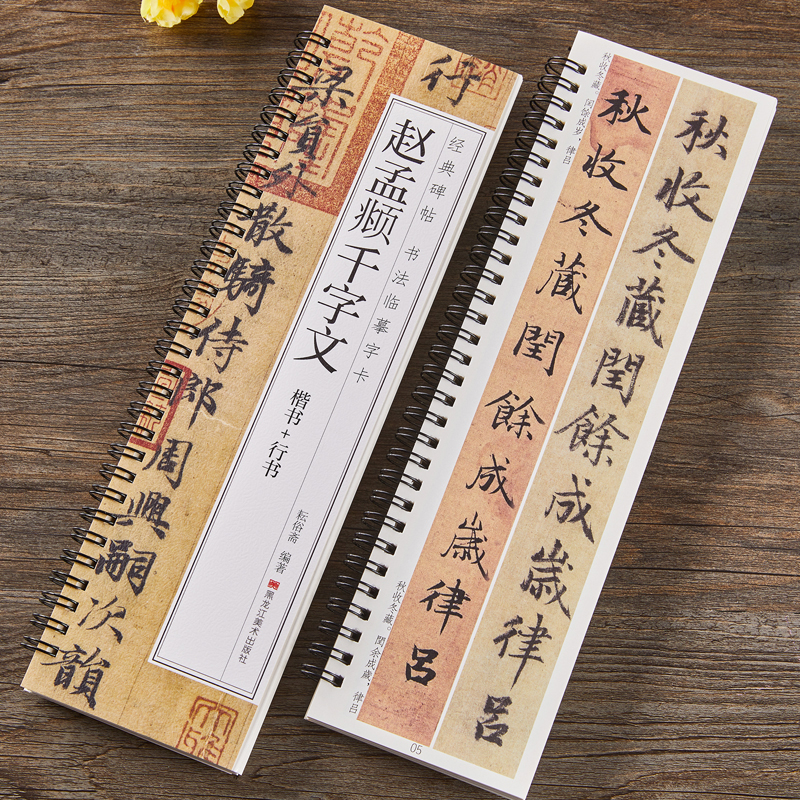 行
梁員外散騎侍郎周興嗣次韻
经典碑帖 书法临摹字卡
赵孟頫千字文
楷书+行书
耘俗斋 编著
黑龙江美术出版社
秋收冬藏。閏餘成岁，律吕
秋收冬藏閏餘成歲律呂
秋收冬藏閏餘成歲律呂
秋收冬藏。閏余成歲，律吕
05